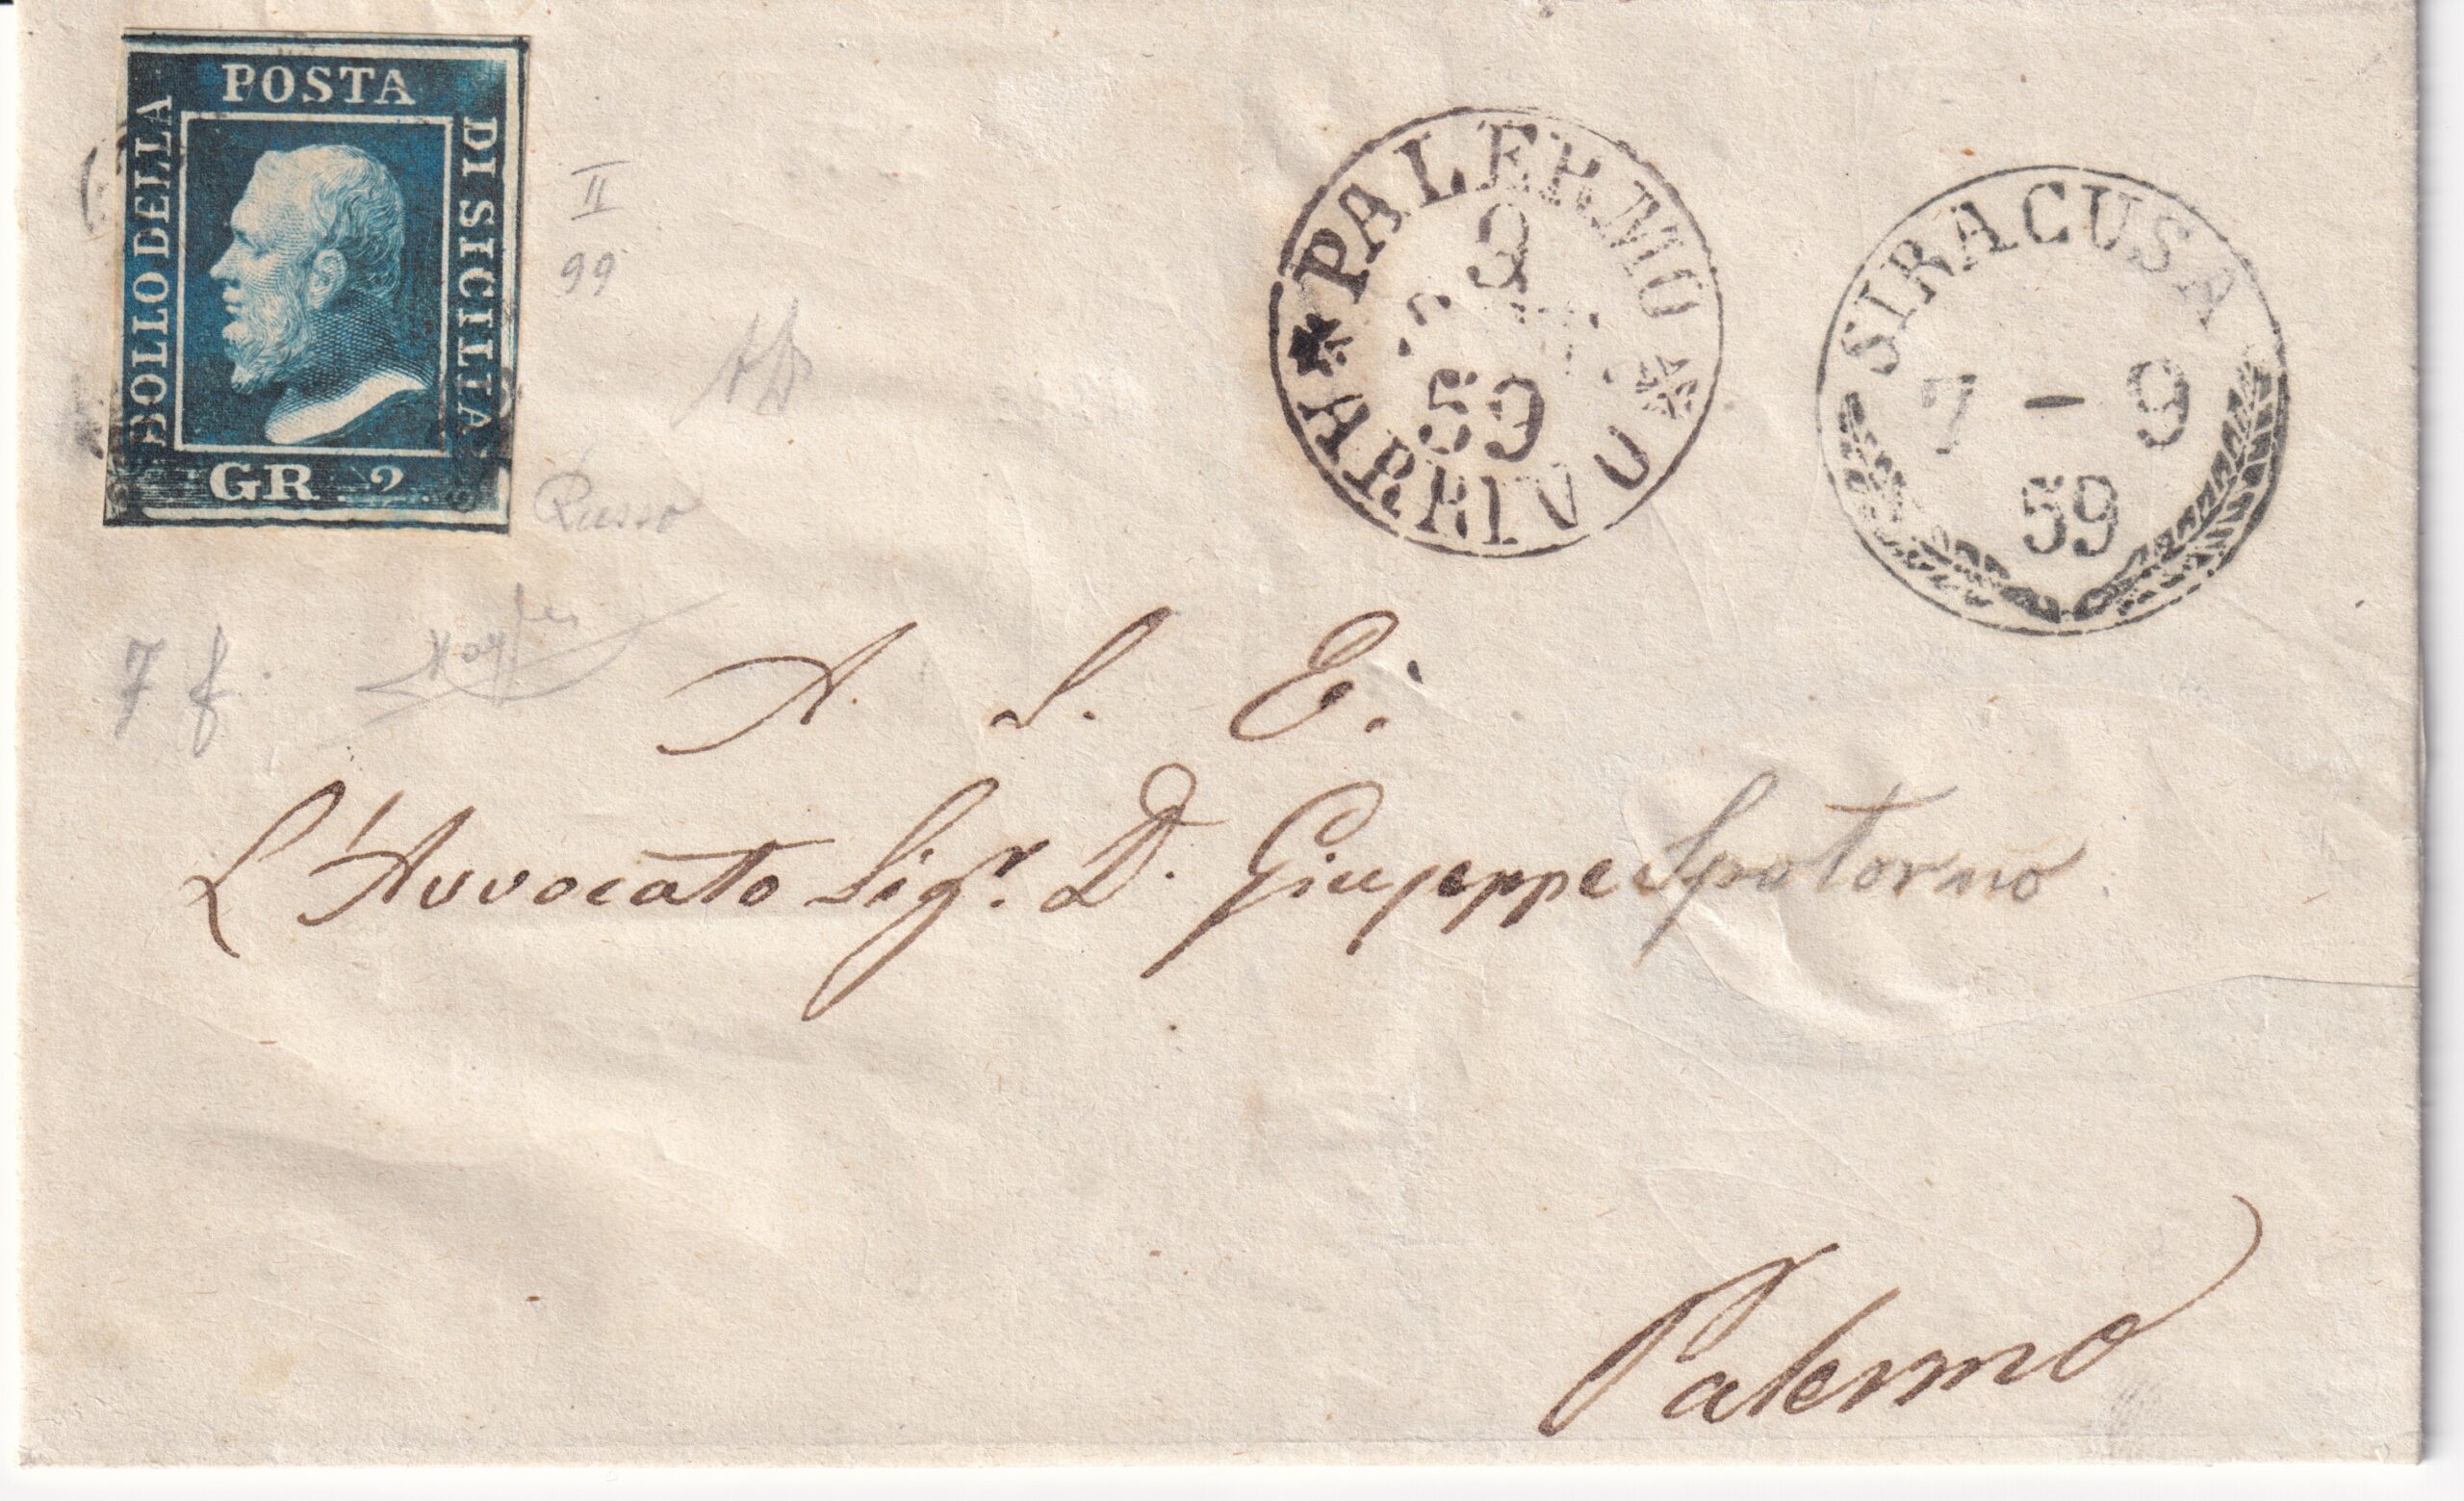 POSTA
BOLLO DELLA
DI SICILIA
GR. 2.
II
99
Russo
PALERMO
9
59
ARRIVO
SIRACUSA
7 - 9
59
7 f.
A. S. E.
L'Avvocato Sigr. D. Giuseppe Spatorno
Palermo